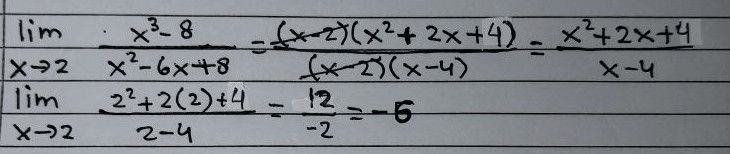 lim x→2 (x³-8)/(x²-6x+8) = ((x-2)(x²+2x+4))/((x-2)(x-4)) = (x²+2x+4)/(x-4)
lim x→2 (2²+2(2)+4)/(2-4) = 12/-2 = -6